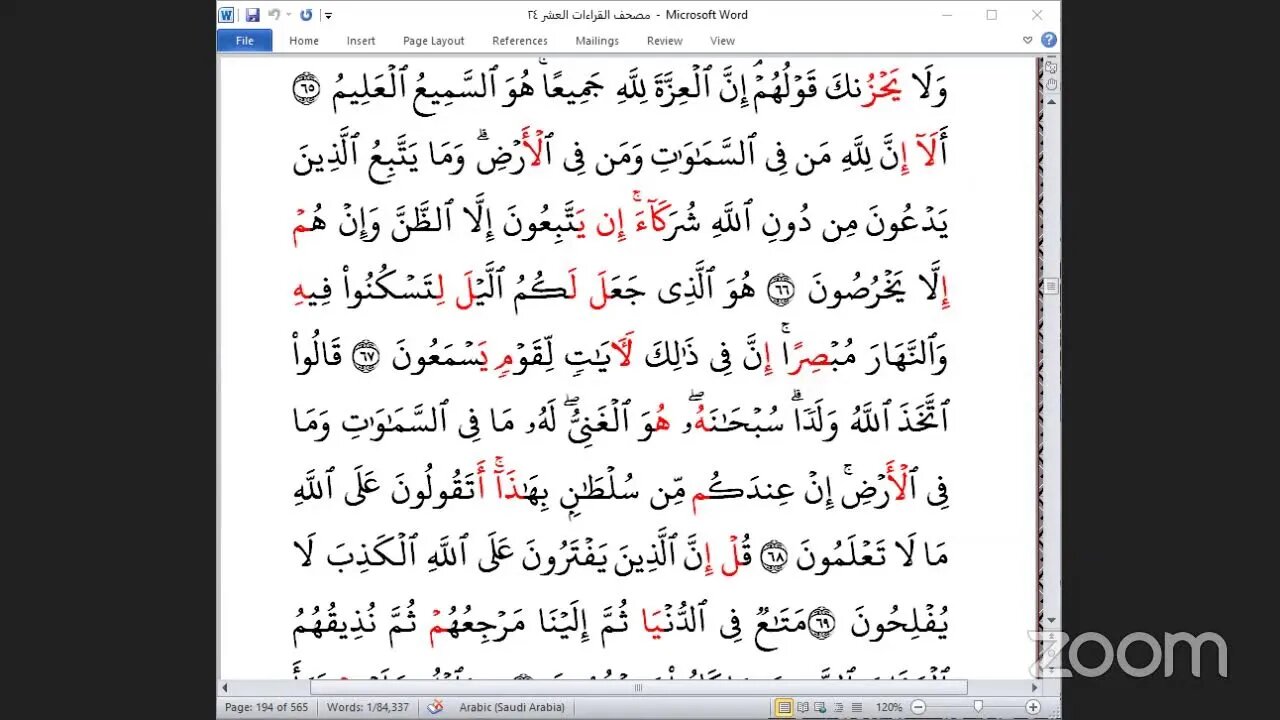 مصحف القراءات العشر ٢٤ - Microsoft Word
File Home Insert Page Layout References Mailings Review View
وَلَا يَحْزُنكَ قَوْلُهُمْۘ إِنَّ ٱلْعِزَّةَ لِلَّهِ جَمِيعًاۚ هُوَ ٱلسَّمِيعُ ٱلْعَلِيمُ ٦٥
أَلَآ إِنَّ لِلَّهِ مَن فِى ٱلسَّمَٰوَٰتِ وَمَن فِى ٱلْأَرْضِۗ وَمَا يَتَّبِعُ ٱلَّذِينَ
يَدْعُونَ مِن دُونِ ٱللَّهِ شُرَكَآءَۚ إِن يَتَّبِعُونَ إِلَّا ٱلظَّنَّ وَإِنْ هُمْ
إِلَّا يَخْرُصُونَ ٦٦ هُوَ ٱلَّذِى جَعَلَ لَكُمُ ٱلَّيْلَ لِتَسْكُنُوا۟ فِيهِ
وَٱلنَّهَارَ مُبْصِرًاۚ إِنَّ فِى ذَٰلِكَ لَأٓيَٰتٍ لِّقَوْمٍ يَسْمَعُونَ ٦٧ قَالُوا۟
ٱتَّخَذَ ٱللَّهُ وَلَدًاۗ سُبْحَٰنَهُۥۖ هُوَ ٱلْغَنِىُّۖ لَهُۥ مَا فِى ٱلسَّمَٰوَٰتِ وَمَا
فِى ٱلْأَرْضِۚ إِنْ عِندَكُم مِّن سُلْطَٰنٍۭ بِهَٰذَآۚ أَتَقُولُونَ عَلَى ٱللَّهِ
مَا لَا تَعْلَمُونَ ٦٨ قُلْ إِنَّ ٱلَّذِينَ يَفْتَرُونَ عَلَى ٱللَّهِ ٱلْكَذِبَ لَا
يُفْلِحُونَ ٦٩ مَتَٰعٌ فِى ٱلدُّنْيَا ثُمَّ إِلَيْنَا مَرْجِعُهُمْ ثُمَّ نُذِيقُهُمُ
zoom
Page: 194 of 565 Words: 1/84,337 Arabic (Saudi Arabia) 120%